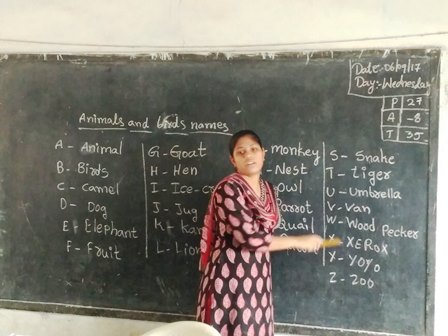 Date:- 06/09/17
Day:- Wednesday
P 27
A -8
T 35
Animals and birds names
A - Animal
B - Birds
C - Camel
D - Dog
E - Elephant
F - Fruit
G - Goat
H - Hen
I - Ice-
J - Jug
K -
L - Lion
- monkey
- Nest
S - Snake
T - Tiger
U - Umbrella
V - Van
W - Wood Pecker
XEROX
Y - YOYO
Z - ZOO